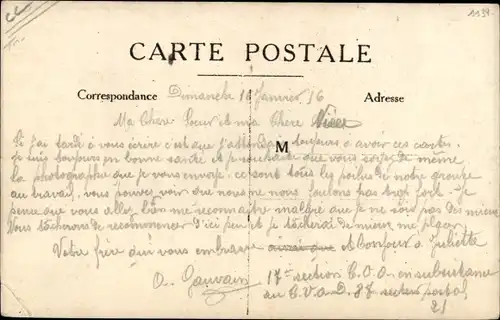 1139-
CARTE POSTALE
Correspondance Dimanche 16 Janvier 16 Adresse
Ma Chere Soeur et ma Chere Niece
M
Si j'ai tardé a vous écrire c'est que j'attendais toujours a avoir ces cartes.
Je suis toujours en bonne santé et je souhaite que vous soyez de même
la photographie que je vous envoye ce sont tous les poilus de notre groupe
au travail, vous pouvez voir que nous ne nous foulons pas trop fort. Je
pense que vous allez bien me reconnaitre malgre que je ne sois pas des mieux
Nous tâcherons de recommencer d'ici peu et je tâcherai de mieux me placer
Votre frère qui vous embrasse et Bonjour a Juliette
O. Gauvain 17e section C.O.A. en subsistance
au C.V.A.D. 87 secteur postal
21